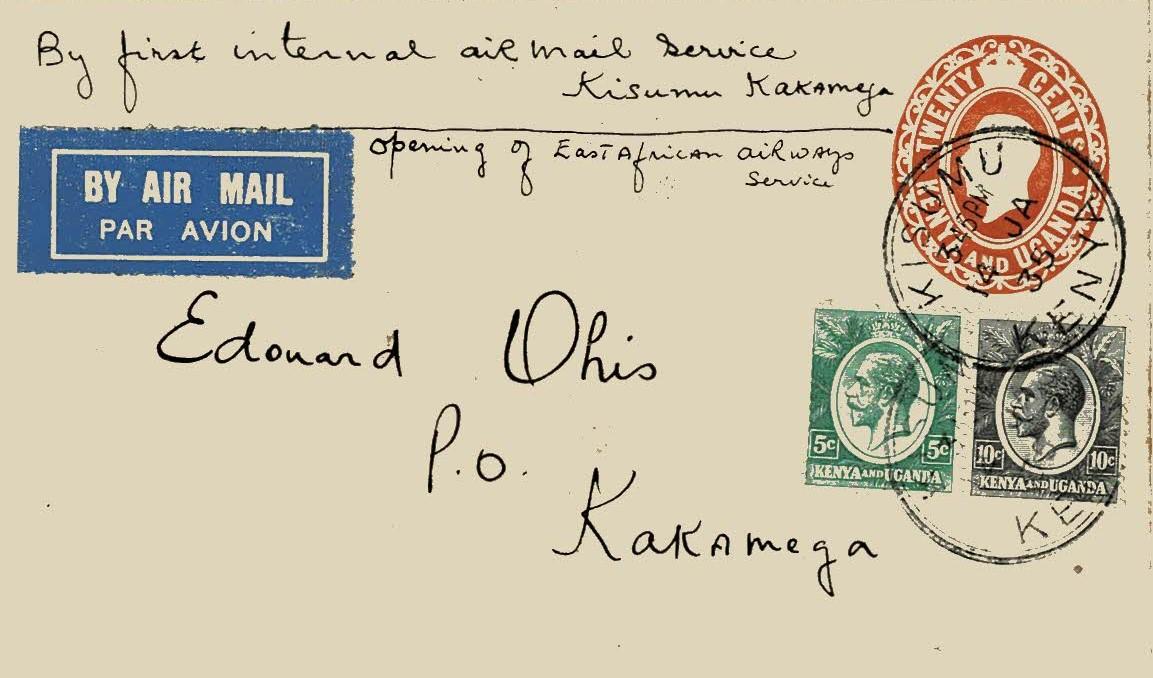 By first internal air mail service
Kisumu Kakamega
opening of East African airways
Service
BY AIR MAIL
PAR AVION
TWENTY CENTS
KENYA AND UGANDA
KISUMU
3 45 PM
14 JA
35
KENYA
Edouard Ohis
P.O.
Kakamega
5c 5c
KENYA AND UGANDA
10c 10c
KENYA AND UGANDA